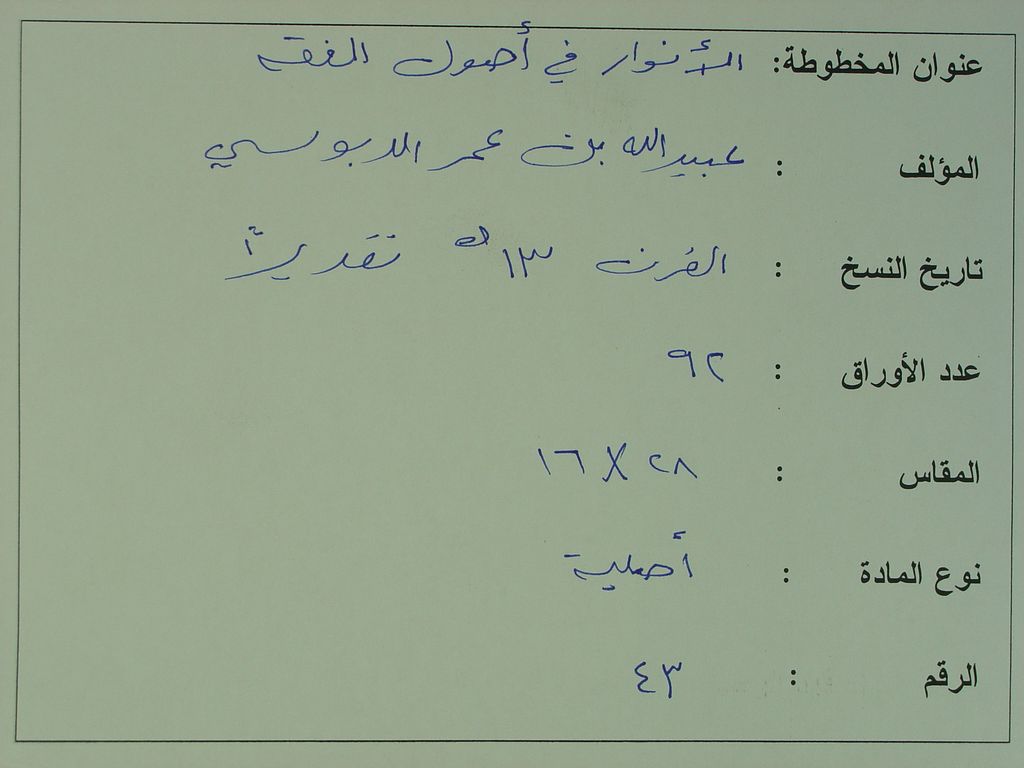 عنوان المخطوطة: الأنوار في أصول الفقه
المؤلف : عبيدالله بن عمر الدبوسي
تاريخ النسخ : القرن ١٣هـ تقديراً
عدد الأوراق : ٩٢
المقاس : ٢٨ X ١٦
نوع المادة : أصلية
الرقم : ٤٣